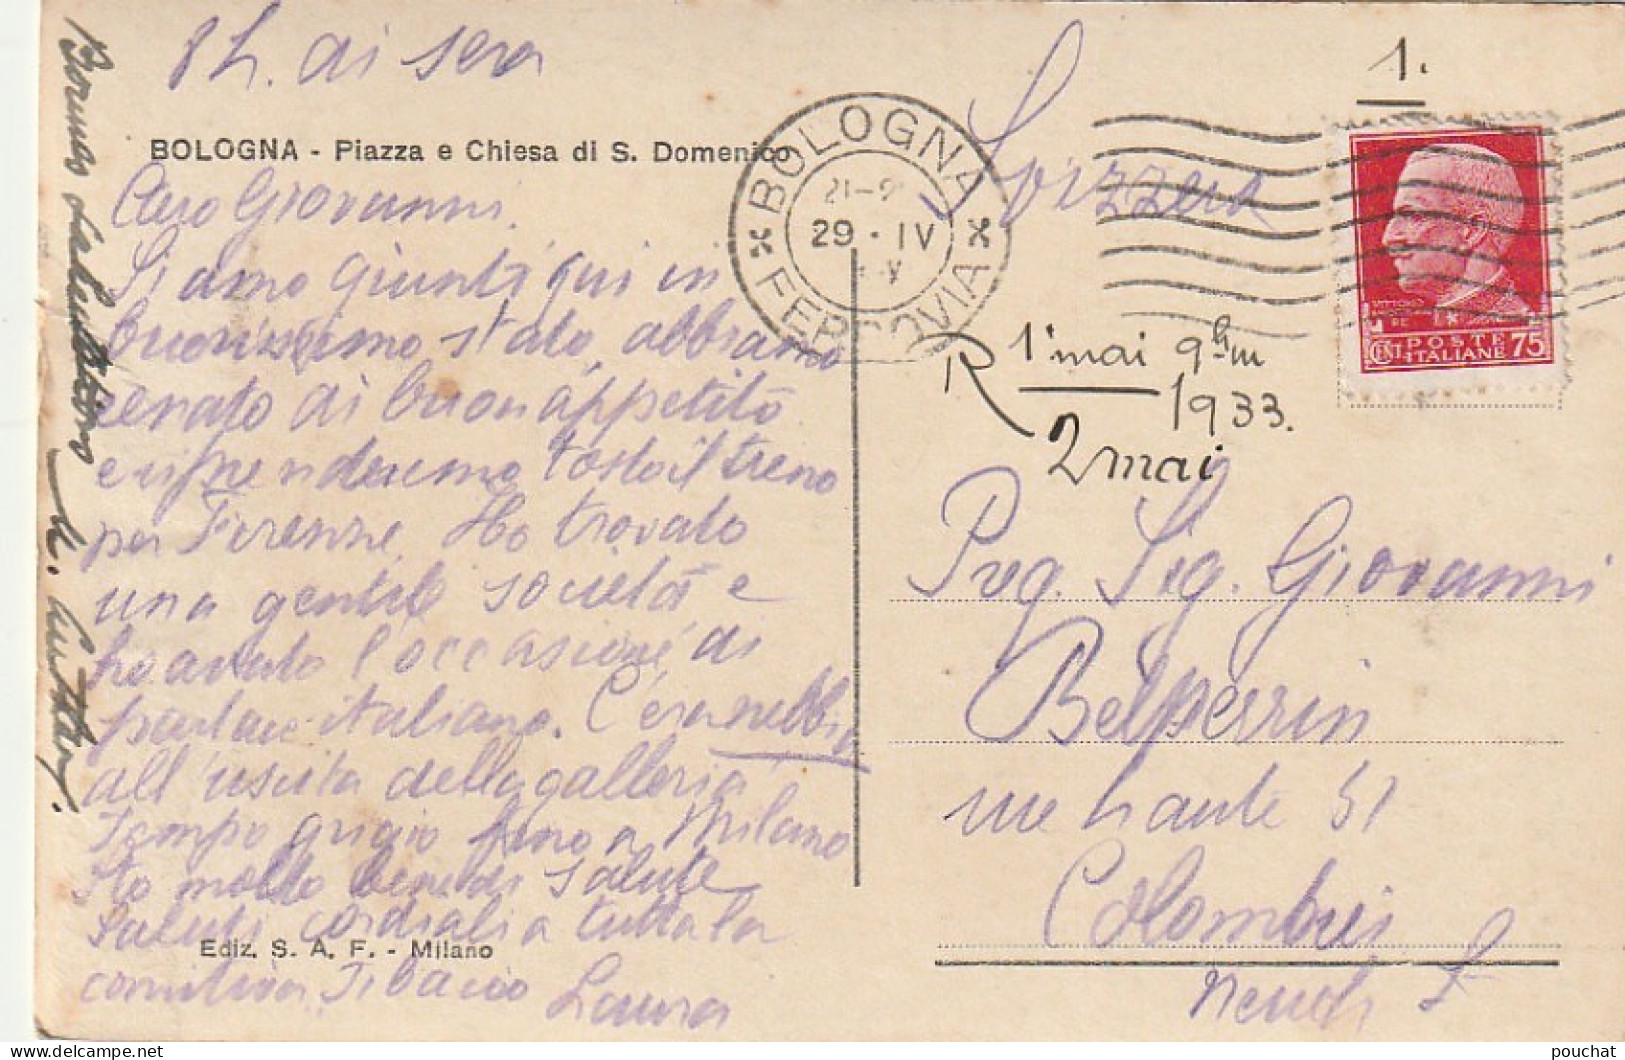 8 h. di sera
BOLOGNA - Piazza e Chiesa di S. Domenico
Caro Giovanni.
Siamo giunti qui in
buonissimo stato, abbiamo
cenato di buon appetito
e riprenderemo tosto il treno
per Firenze. Ho trovato
una gentile società e
ho avuto l'occasione di
parlare italiano. C'era nebbia
all'uscita della galleria
Tempo grigio fino a Milano
Sto molto bene di salute
Saluti cordiali a tutta la
comitiva. Ti bacio
Laura
Ediz. S. A. F. - Milano
BOLOGNA
FERROVIA
21-2
29 · IV
Svizzera
1.
VITTORIO
RE
POSTE
ITALIANE
CENT 75
R 1' mai 9h m
1933.
2 mai
Preg. Sig. Giovanni
Belperrin
rue haute 51
Colombier
Neuch
pouchat